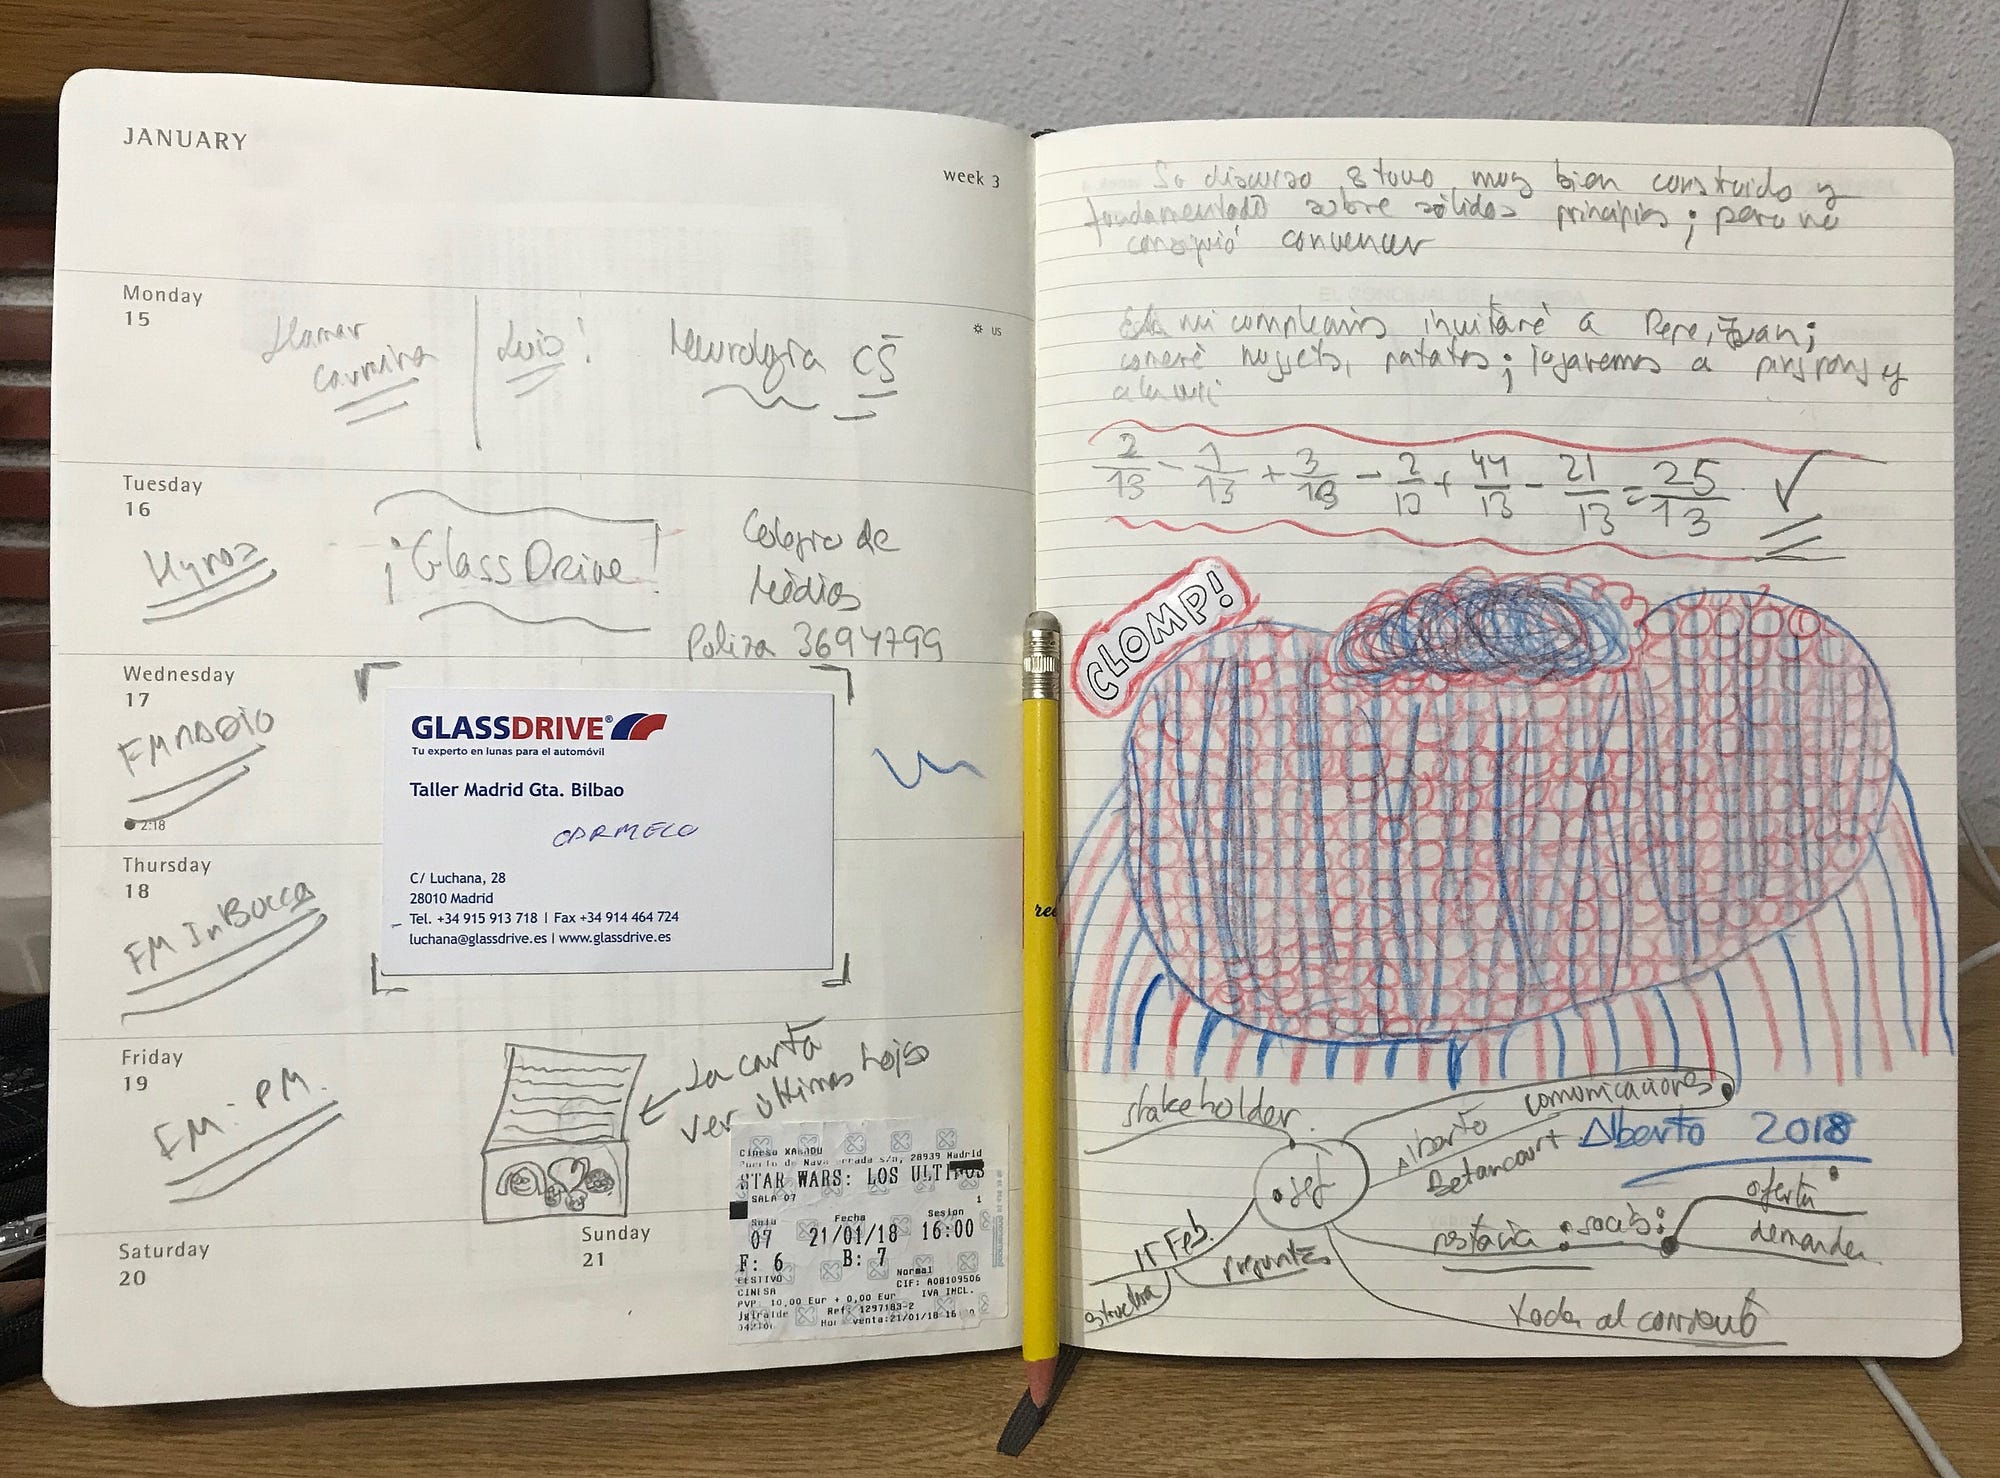 JANUARY
week 3
Monday
15
Llamar
Carmina
Luis!
Neurología CS
US
Tuesday
16
Kynoz
¡GlassDrive!
Colegio de
Médios
Poliza 3694799
Wednesday
17
FM
2:18
GLASSDRIVE®
Tu experto en lunas para el automóvil
Taller Madrid Gta. Bilbao
CARMELO
C/ Luchana, 28
28010 Madrid
Tel. +34 915 913 718 | Fax +34 914 464 724
luchana@glassdrive.es | www.glassdrive.es
Thursday
18
FM InBocca
Friday
19
FM - PM.
La carta
ver últimas hojas
Saturday
20
Sunday
21
Cinesa XANADU
Puerto de Navacerrada s/n, 28939 Madrid
STAR WARS: LOS ULTIMOS
SALA 07
1
Sala Fecha Sesion
07 21/01/18 16:00
F: 6 B: 7
FESTIVO Normal
CINESA CIF: A08109506
PVP. 10,00 Eur + 0,00 Eur IVA INCL.
Ref: 1297183-2
venta:21/01/18 16
Su discurso estuvo muy bien construido y
fundamentado sobre sólidos principios; pero no
consiguió convencer
mi cumpleaños invitaré a Pepe, Juan;
comeré nuggets, patatas; jugaremos a pingpong y
a la wii
2/13 - 1/13 + 3/13 - 2/13 + 44/13 - 21/13 = 25/13
CLOMP!
stakeholder
Alberto comunicaciones
Betancourt
Alberto 2018
Feb.
preguntas
oferta
demanda